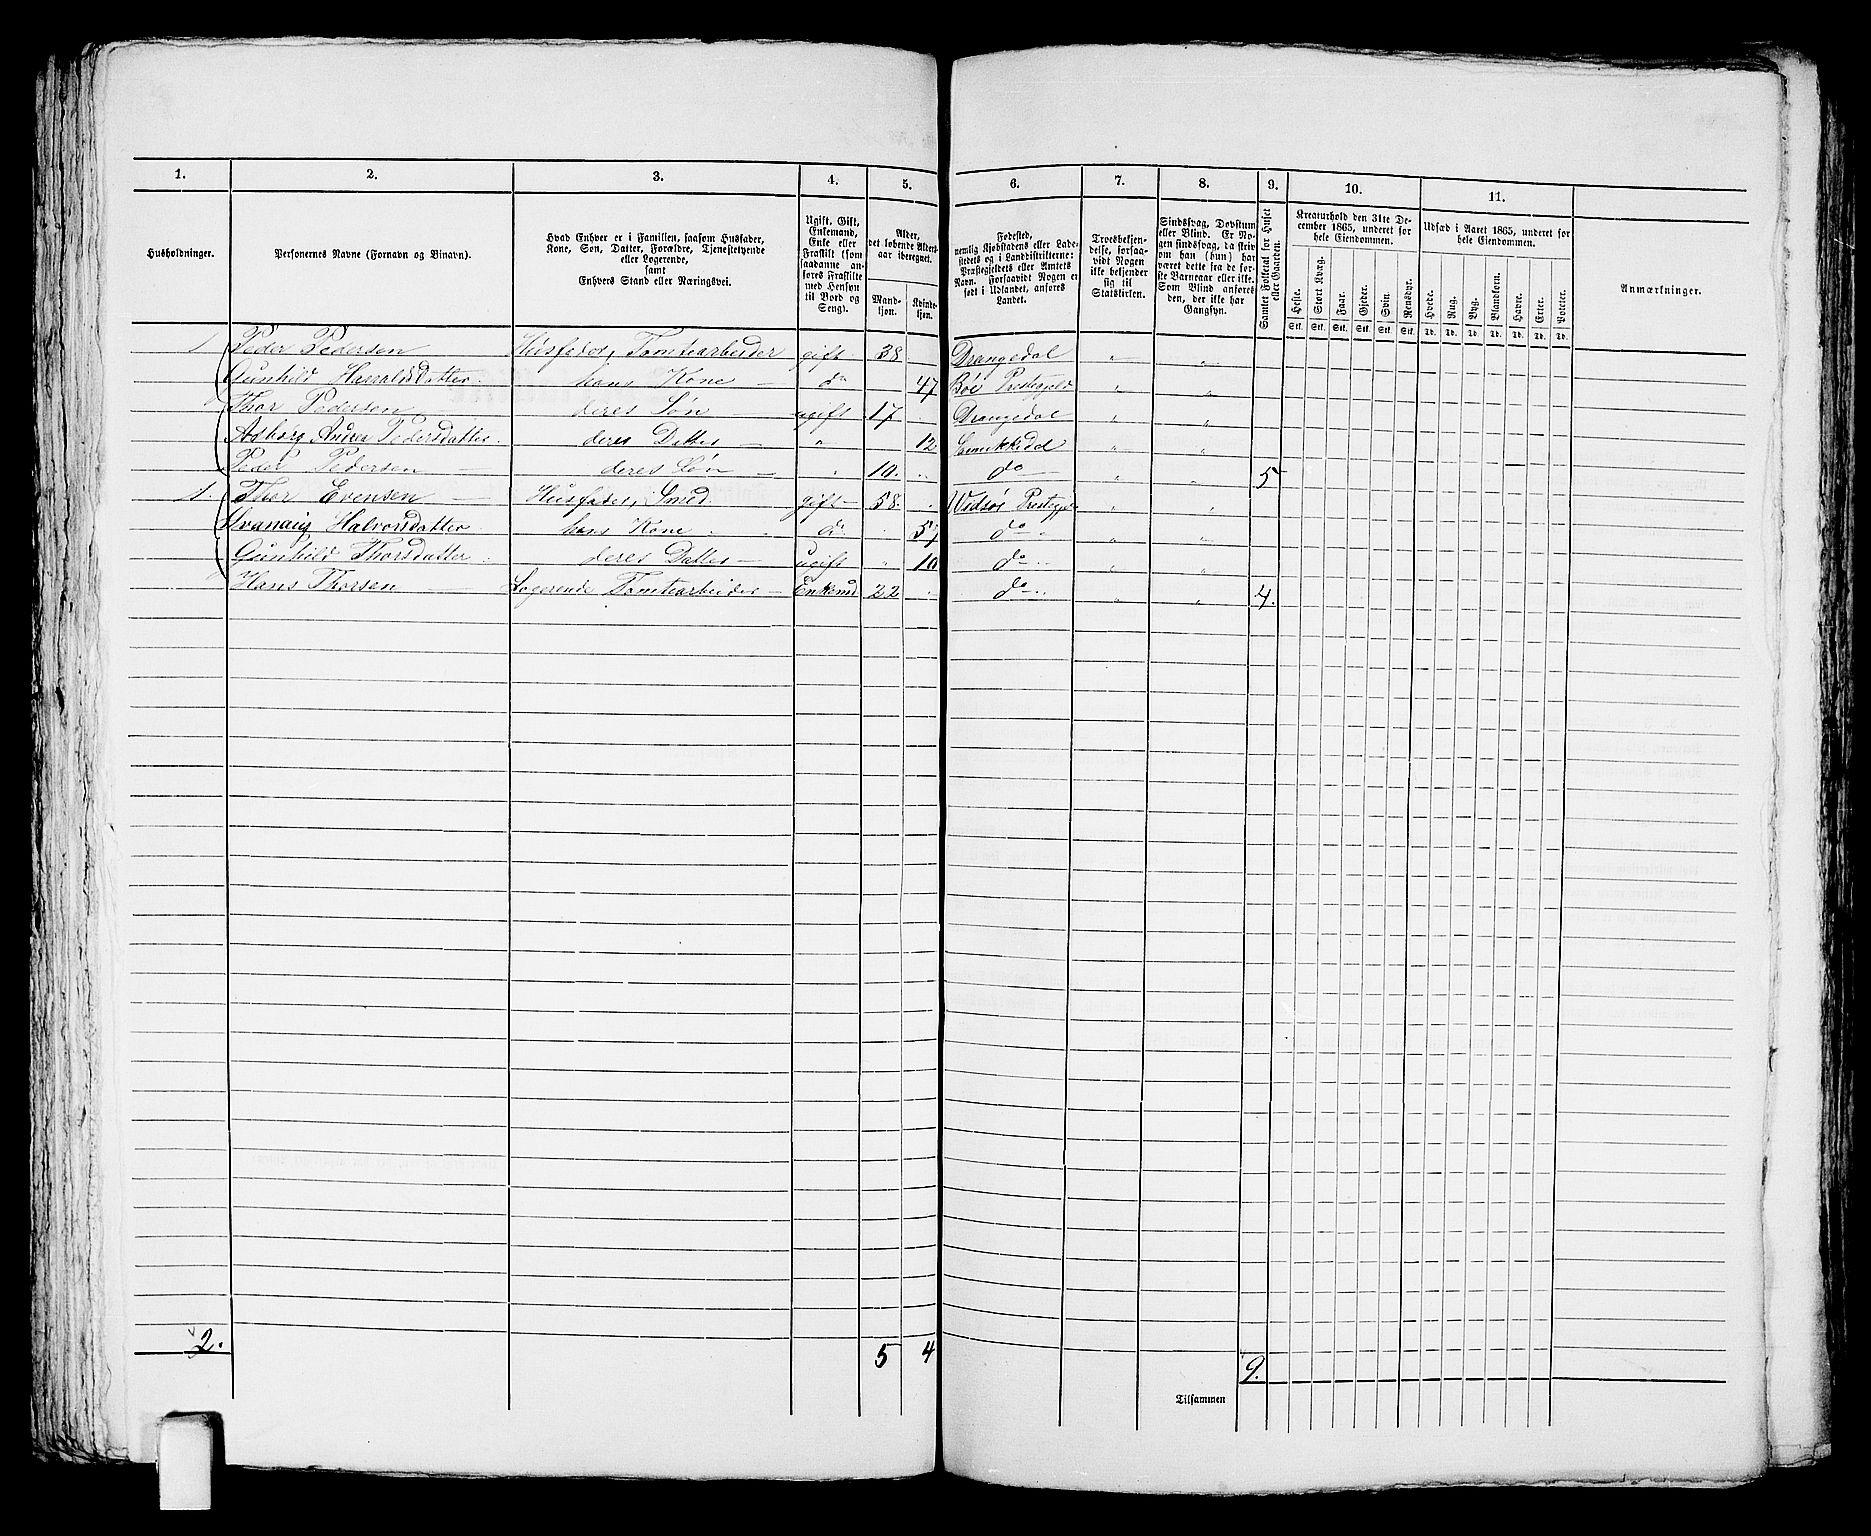 1. 2. 3. 4. 5. 6. 7. 8. 9. 10. 11.
Husholdninger.
Personernes Navne (Fornavn og Binavn).
Hvad Enhver er i Familien, saasom Husfader,
Kone, Søn, Datter, Forældre, Tjenestetyende
eller Logerende,
samt
Enhvers Stand eller Næringsvei.
Ugift, Gift,
Enkemand,
Enke eller
Fraskilt (som
saadanne an-
føres Fraskilte
med Hensyn
til Bord og
Seng).
Alder,
det løbende Alders-
aar iberegnet.
Mand-
kjøn.
Kvinde-
kjøn.
Fødested,
nemlig Kjøbstadens eller Lade-
stedets og i Landdistrikterne:
Præstegjeldets eller Amtets
Navn. Forsaavidt Nogen er
født i Udlandet, anføres
Landet.
Troesbekjen-
delse, forsaa-
vidt Nogen
ikke bekjender
sig til
Statskirken.
Sindssvag, Døvstum
eller Blind. Er No-
gen sindssvag, da skriv
om han (hun) har
været dette fra de før-
ste Barneaar eller ikke.
Som Blind anføres
den, der ikke har
Gangsyn.
Samlet Folketal for Huset
eller Gaarden.
Kreaturhold den 31te De-
cember 1865, underet for
hele Eiendommen.
Heste. Stort Kvæg. Faar. Gjeder. Svin. Rensdyr.
Stk. Stk. Stk. Stk. Stk. Stk.
Udsæd i Aaret 1865, underet for
hele Eiendommen.
Hvede. Rug. Byg. Blandkorn. Havre. Erter. Poteter.
Td. Td. Td. Td. Td. Td. Td.
Anmærkninger.
1 Peder Pedersen Husfader, Tomtearbeider gift 38 Drangedal " "
Gunhild HarraldsDatter hans Kone do 47 Bøe Prestegjeld " "
Thor Pedersen deres Søn ugift 17 Drangedal " "
Asbørg Andrea Pedersdatter deres Datter " 12 " "
Peder Pedersen deres Søn " 10 do " " 5
1. Thor Evensen Husfader, Smed gift 58 " "
Halvorsdatter hans Kone do 57 do " "
Gunhild Thorsdatter deres Datter ugift 10 do " "
Hans Thorsen Logerende Tomtearbeider Enkemd 22 do " " 4.
2. 5 4 9.
Tilsammen